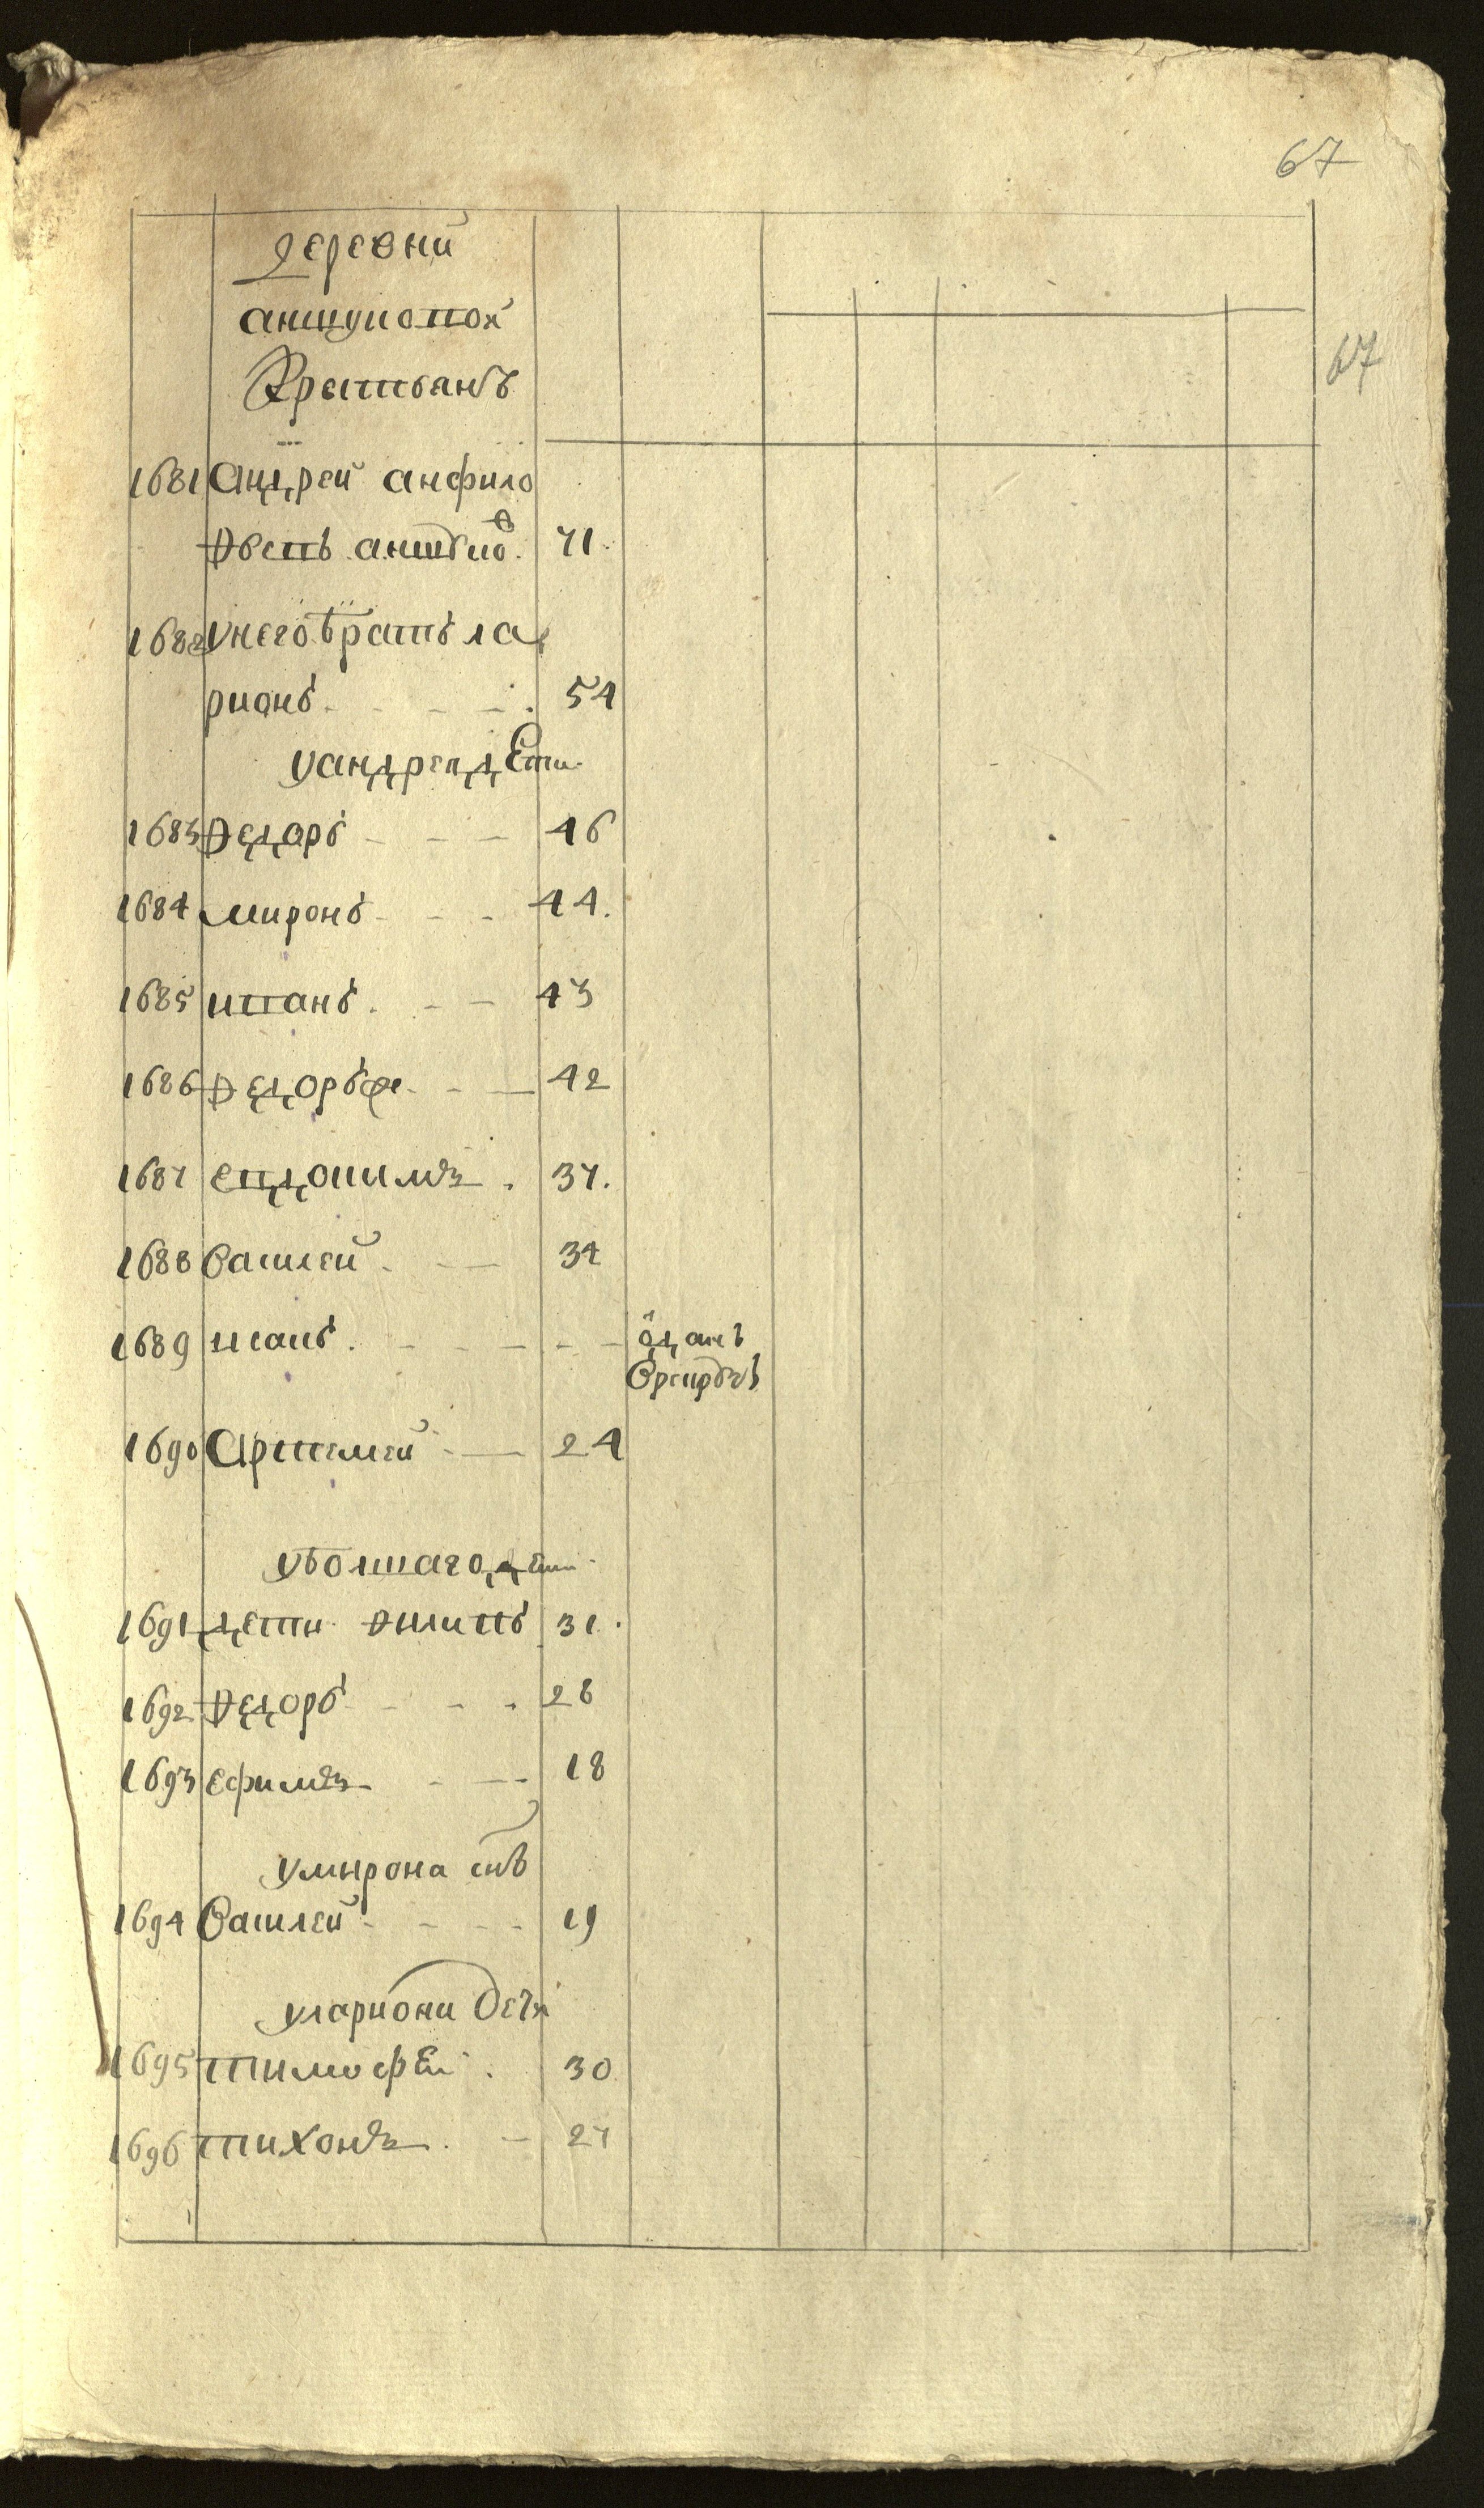 67
деревни
аншуковой
крестьянъ
67
1681 Андрей анфило
феевъ аншуко в 71
1682 у него братъ ла
рионъ 54
у андрея дети
1683 Федоръ 46
1684 миронъ 44.
1685 иванъ 43
1686 Федоръ же 42
1687 евдокимъ 37.
1688 василей 34
1689 исакъ отданъ
врекруты
1690 Артемей 24
у болшаго дети
1691 дети Филипъ 31.
1692 Федоръ 28
1693 ефимъ 18
у мирона снъ
1694 василей 19
у лариона дети
1695 тимофей 30
1696 тихонъ 27